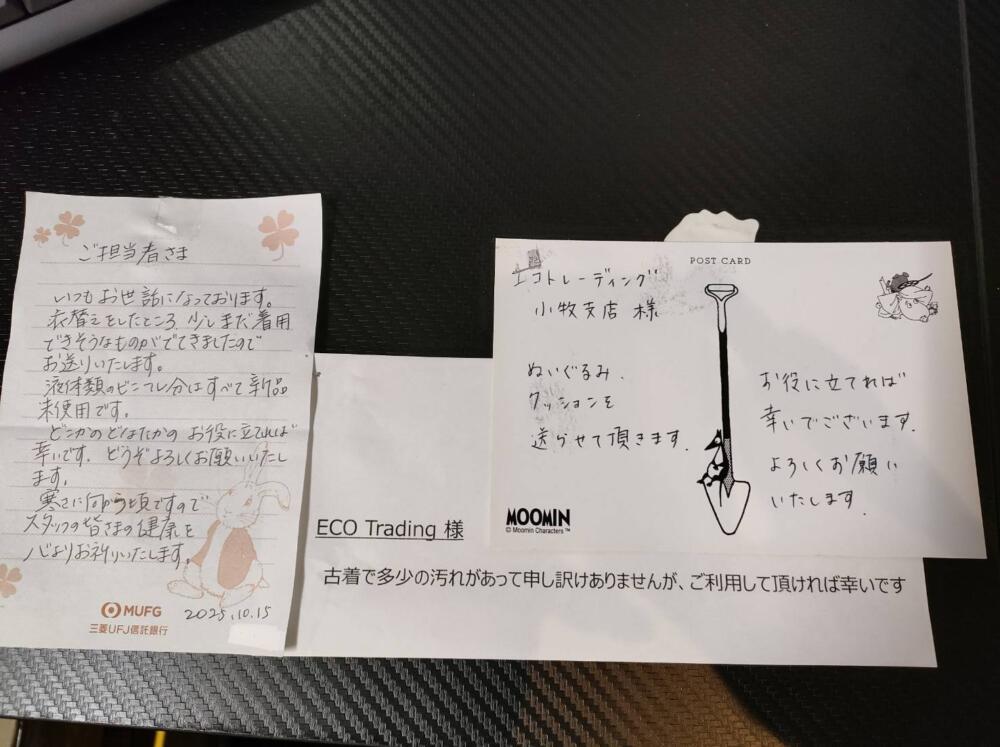 ご担当者さま
いつもお世話になっております。
衣替えをしたところ、少しまだ着用
できそうなものがでてきましたので
お送りいたします。
液体類のビニール分はすべて新品
未使用です。
どこかのどなたかの お役に立てれば
幸いです。どうぞよろしくお願いいたし
ます。
寒さに向かう頃ですので
スタッフの皆さまの健康を
心よりお祈りいたします。
MUFG
三菱UFJ信託銀行
2025.10.15
ECO Trading 様
古着で多少の汚れがあって申し訳けありませんが、ご利用して頂ければ幸いです
POST CARD
エコトレーディング
小牧支店 様
ぬいぐるみ、
クッションを
送らせて頂きます。
お役に立てれば
幸いでございます。
よろしくお願い
いたします。
MOOMIN
© Moomin Characters™